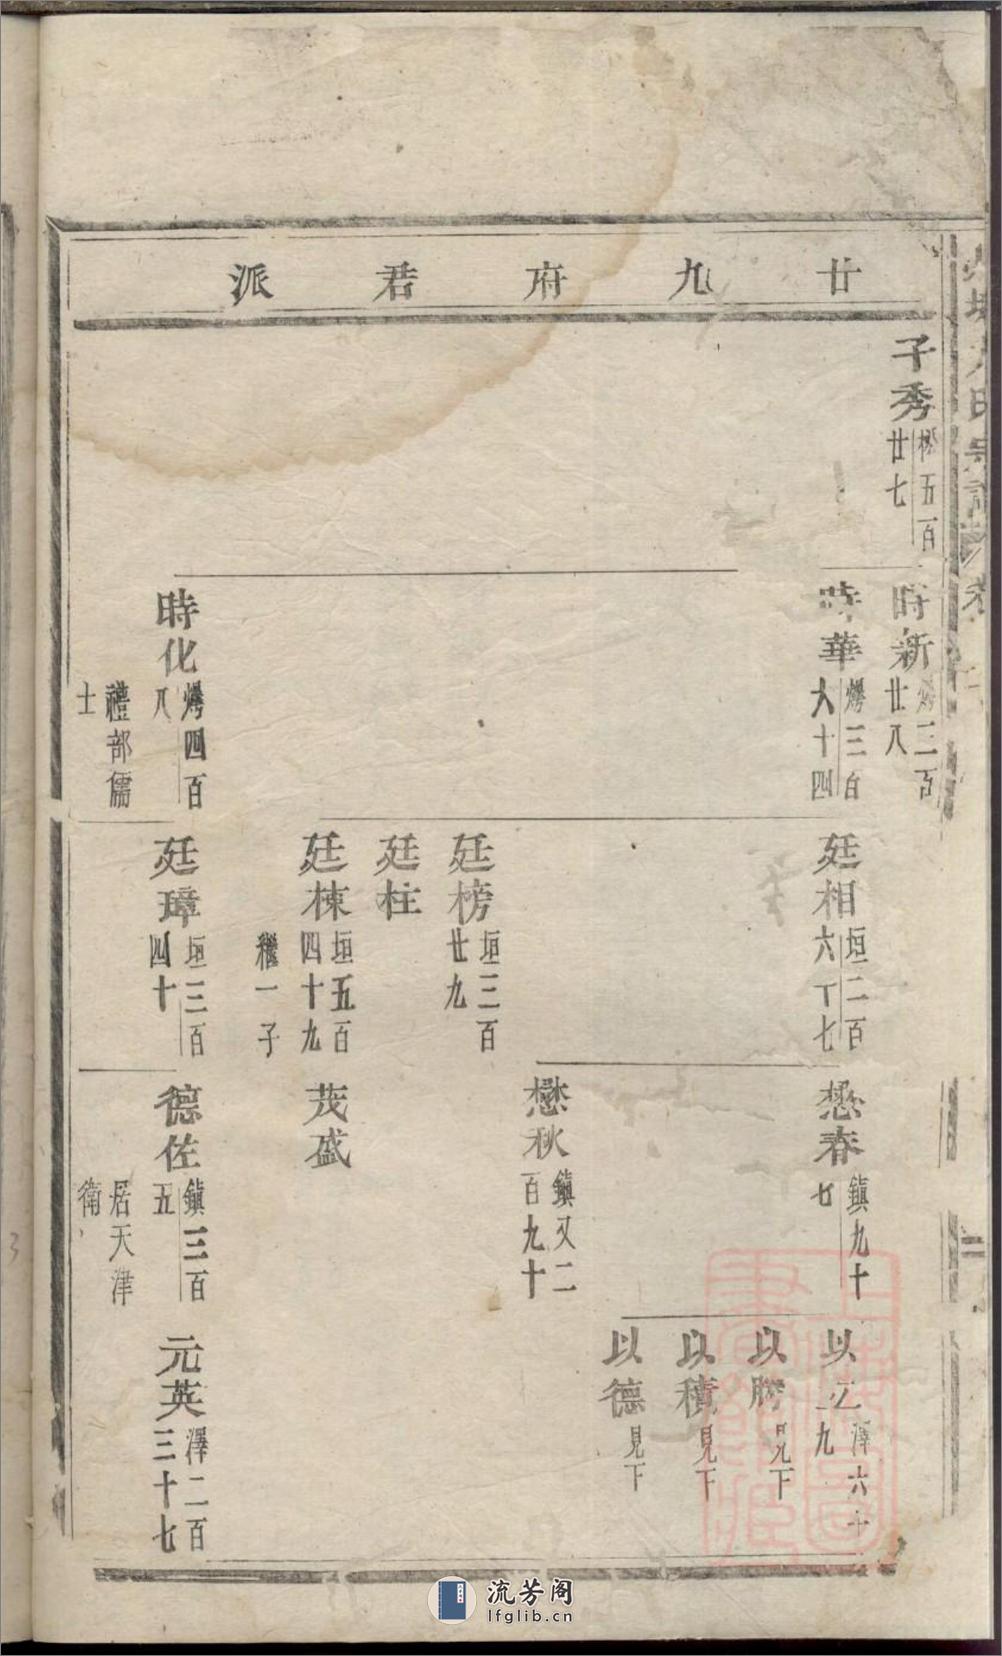 廿九府君派
子秀 松五百廿七
時新 燽三百廿八
時華 燽三百六十四
時化 燽四百八 禮部儒士
廷相 垣二百六十七
廷榜 垣三百廿九
廷柱
廷棟 垣五百四十九 繼一子
廷璋 垣三百四十
懋春 鎮九十七
懋秋 鎮又二百九十
茂盛
德佐 鎮三百五 居天津衛
以 澤六十九
以 見下
以積 見下
以德 見下
元英 澤二百三十七
流芳阁
lfglib.cn